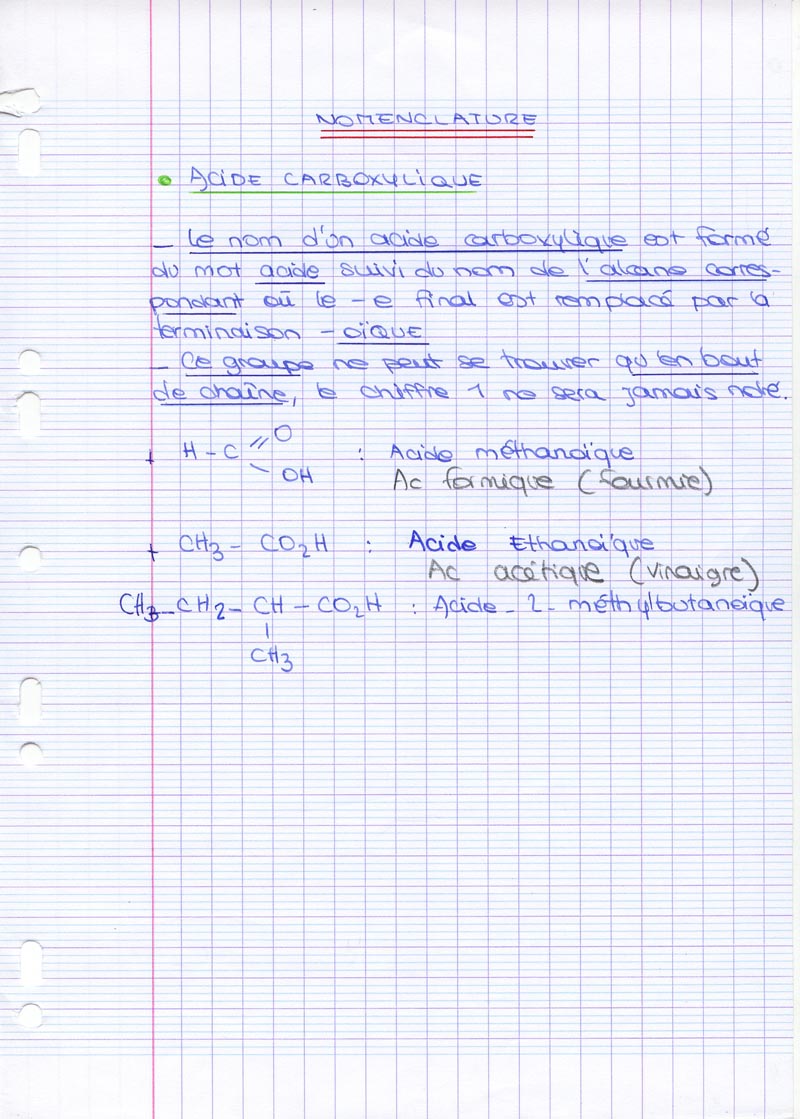 NOMENCLATURE
• ACIDE CARBOXYLIQUE
_ Le nom d'un acide carboxylique est formé
du mot acide suivi du nom de l'alcane corres-
pondant où le -e final est remplacé par la
terminaison - oïQUE
_ Ce groupe ne peut se trouver qu'en bout
de chaîne, le chiffre 1 ne sera jamais noté.
+ H - C =O -OH : Acide méthanoïque
Ac formique (fourmie)
+ CH3 - CO2H : Acide Ethanoïque
Ac acétique (vinaigre)
CH3 - CH2 - CH - CO2H : Acide - 2 - méthylbutanoïque
CH3